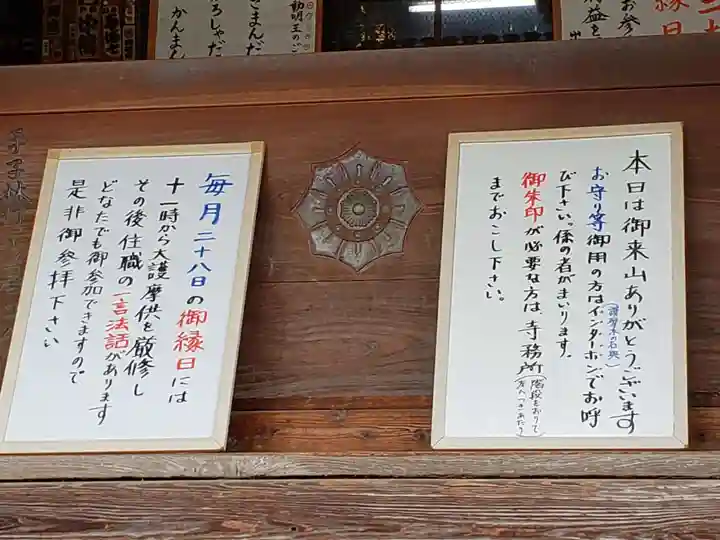 本日は御来山ありがとうございます
お守り等御用の方はインターホンでお呼
(護摩木の右奥)
び下さい。係の者がまいります。
御朱印が必要な方は、寺務所
(階段をおりて
左へつきあたり)
までおこし下さい。
毎月二十八日の御縁日には
十一時から大護摩供を厳修し
その後住職の一言法話があります
どなたでも御参加できますので
是非御参拝下さい